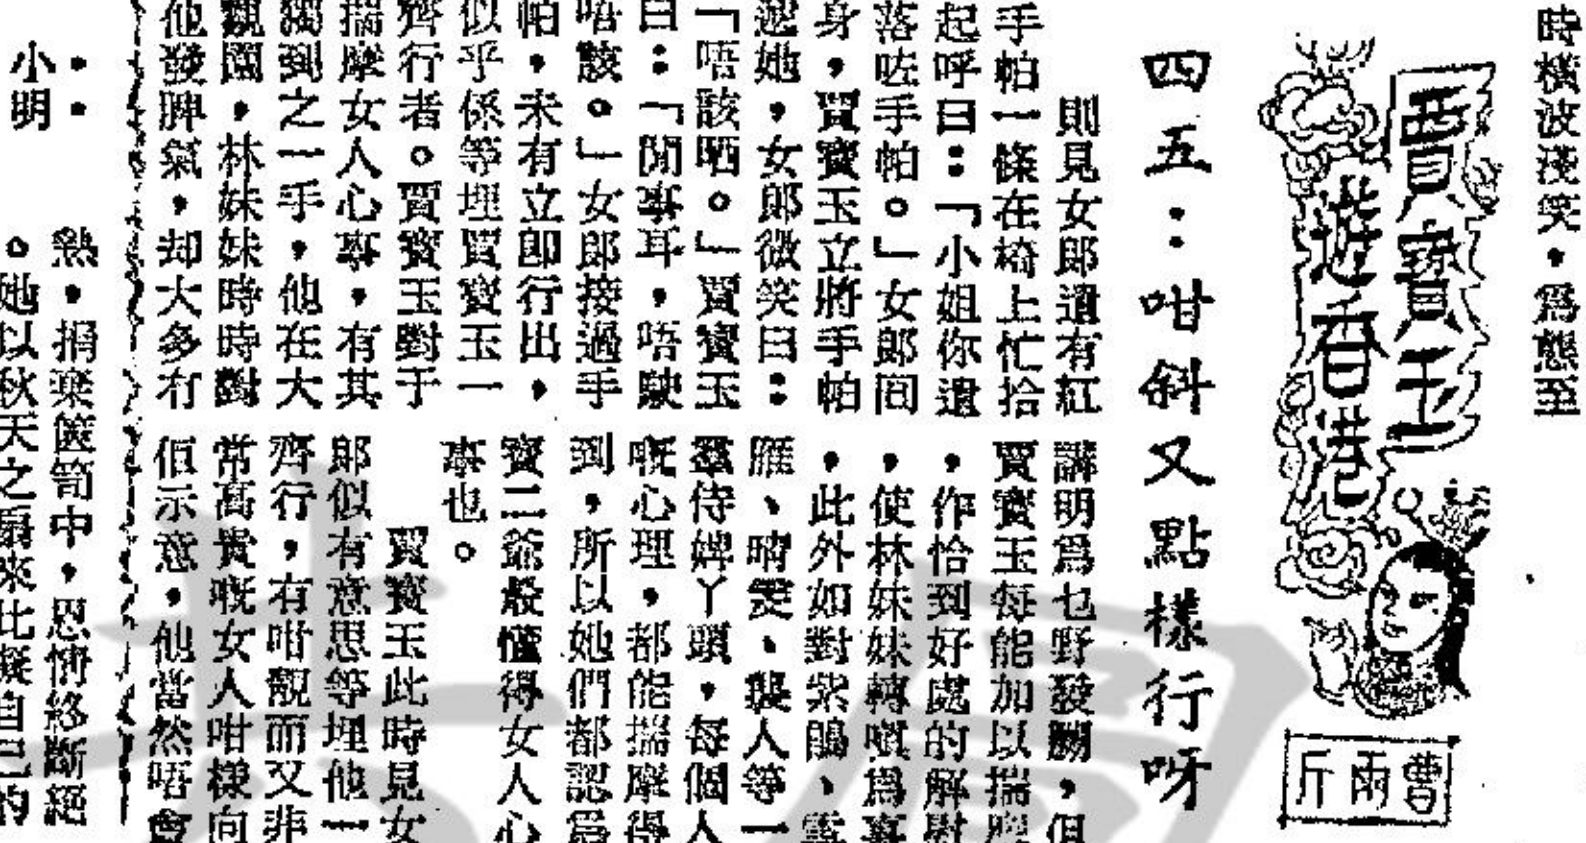 時橫波淺笑,爲態至
賈寶玉
遊香港
曹雨斤
四五:咁斜又點樣行呀
則見女郎遺有紅
手帕一條在椅上忙拾
起呼曰:「小姐你遺
落咗手帕。」女郎囘
身,賈寶玉立將手帕
遞她,女郎微笑曰:
「唔該晒。」賈寶玉
曰:「閒事耳,唔駛
唔該。」女郎接過手
帕,未有立卽行出,
似乎係等埋賈寶玉一
齊行者。賈寶玉對于
揣摩女人心事,有其
獨到之一手,他在大
觀園,林妹妹時時對
他發脾氣,却大多冇
講明爲乜野發嬲,但
賈寶玉每能加以揣摩
,作恰到好處的解慰
,使林妹妹轉嗔爲喜
,此外如對紫鵑、雪
雁、晴雯、襲人等一
羣侍婢丫頭,每個人
嘅心理,都能揣摩得
到,所以她們都認爲
寶二爺最懂得女人心
事也。
賈寶玉此時見女
郎似有意思等埋他一
齊行,有咁靚而又非
常高貴嘅女人咁樣向
佢示意,他當然唔會
:
小明
熱,捐棄篋笥中,恩情終斷絕
。她以秋天之扇來比擬自己的